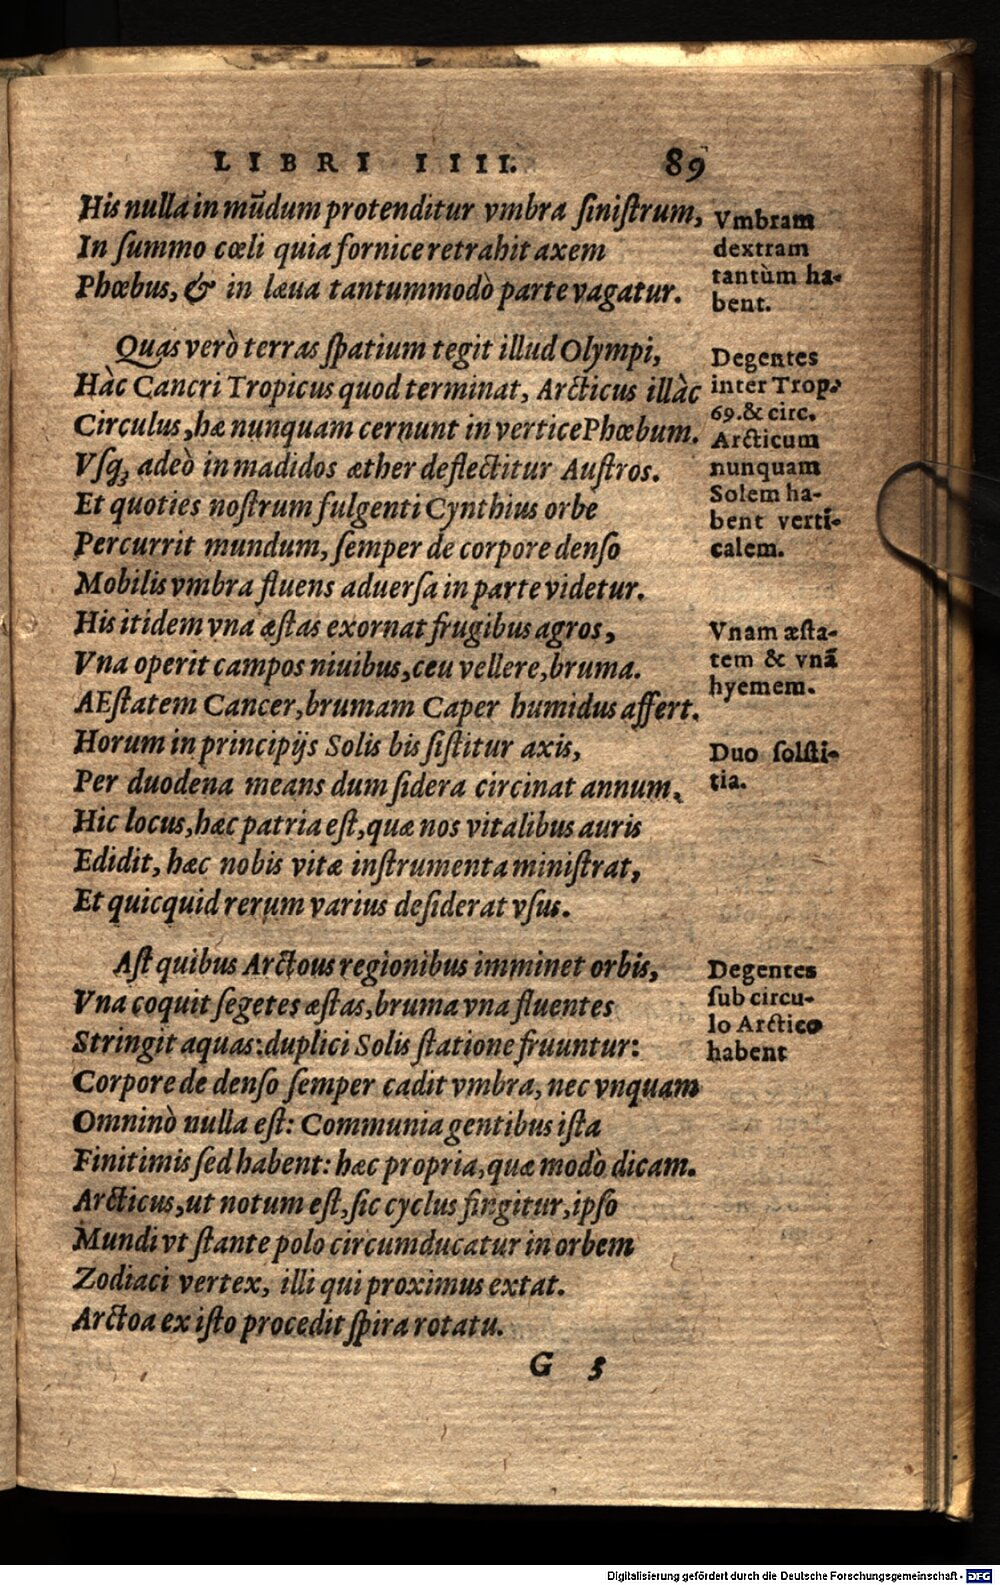 LIBRI IIII. 89
His nulla in mũdum protenditur vmbra ſiniſtrum,
In ſummo cœli quia fornice retrahit axem
Phœbus, & in læua tantummodò parte vagatur.
Vmbram
dextram
tantùm ha-
bent.
Quas verò terras ſpatium tegit illud Olympi,
Hàc Cancri Tropicus quod terminat, Arcticus illàc
Circulus, hæ nunquam cernunt in vertice Phœbum.
Vſq; adeò in madidos æther deflectitur Auſtros.
Et quoties noſtrum fulgenti Cynthius orbe
Percurrit mundum, ſemper de corpore denſo
Mobilis vmbra fluens aduerſa in parte videtur.
Degentes
inter Trop.
69. & circ.
Arcticum
nunquam
Solem ha-
bent verti-
calem.
His itidem vna æſtas exornat frugibus agros,
Vna operit campos niuibus, ceu vellere, bruma.
AEſtatem Cancer, brumam Caper humidus affert.
Vnam æſta-
tem & vnã
hyemem.
Horum in principijs Solis bis ſiſtitur axis,
Per duodena means dum ſidera circinat annum.
Duo ſolſti-
tia.
Hic locus, hæc patria eſt, quæ nos vitalibus auris
Edidit, hæc nobis vitæ inſtrumenta miniſtrat,
Et quicquid rerum varius deſiderat vſus.
Aſt quibus Arctous regionibus imminet orbis,
Vna coquit ſegetes æſtas, bruma vna fluentes
Stringit aquas: duplici Solis ſtatione fruuntur:
Corpore de denſo ſemper cadit vmbra, nec vnquam
Degentes
ſub circu-
lo Arctico
habent
Omninò nulla eſt: Communia gentibus iſta
Finitimis ſed habent: hæc propria, quæ modò dicam.
Arcticus, ut notum eſt, ſic cyclus fingitur, ipſo
Mundi vt ſtante polo circumducatur in orbem
Zodiaci vertex, illi qui proximus extat.
Arctoa ex iſto procedit ſpira rotatu.
G 3
Digitalisierung gefördert durch die Deutsche Forschungsgemeinschaft - DFG